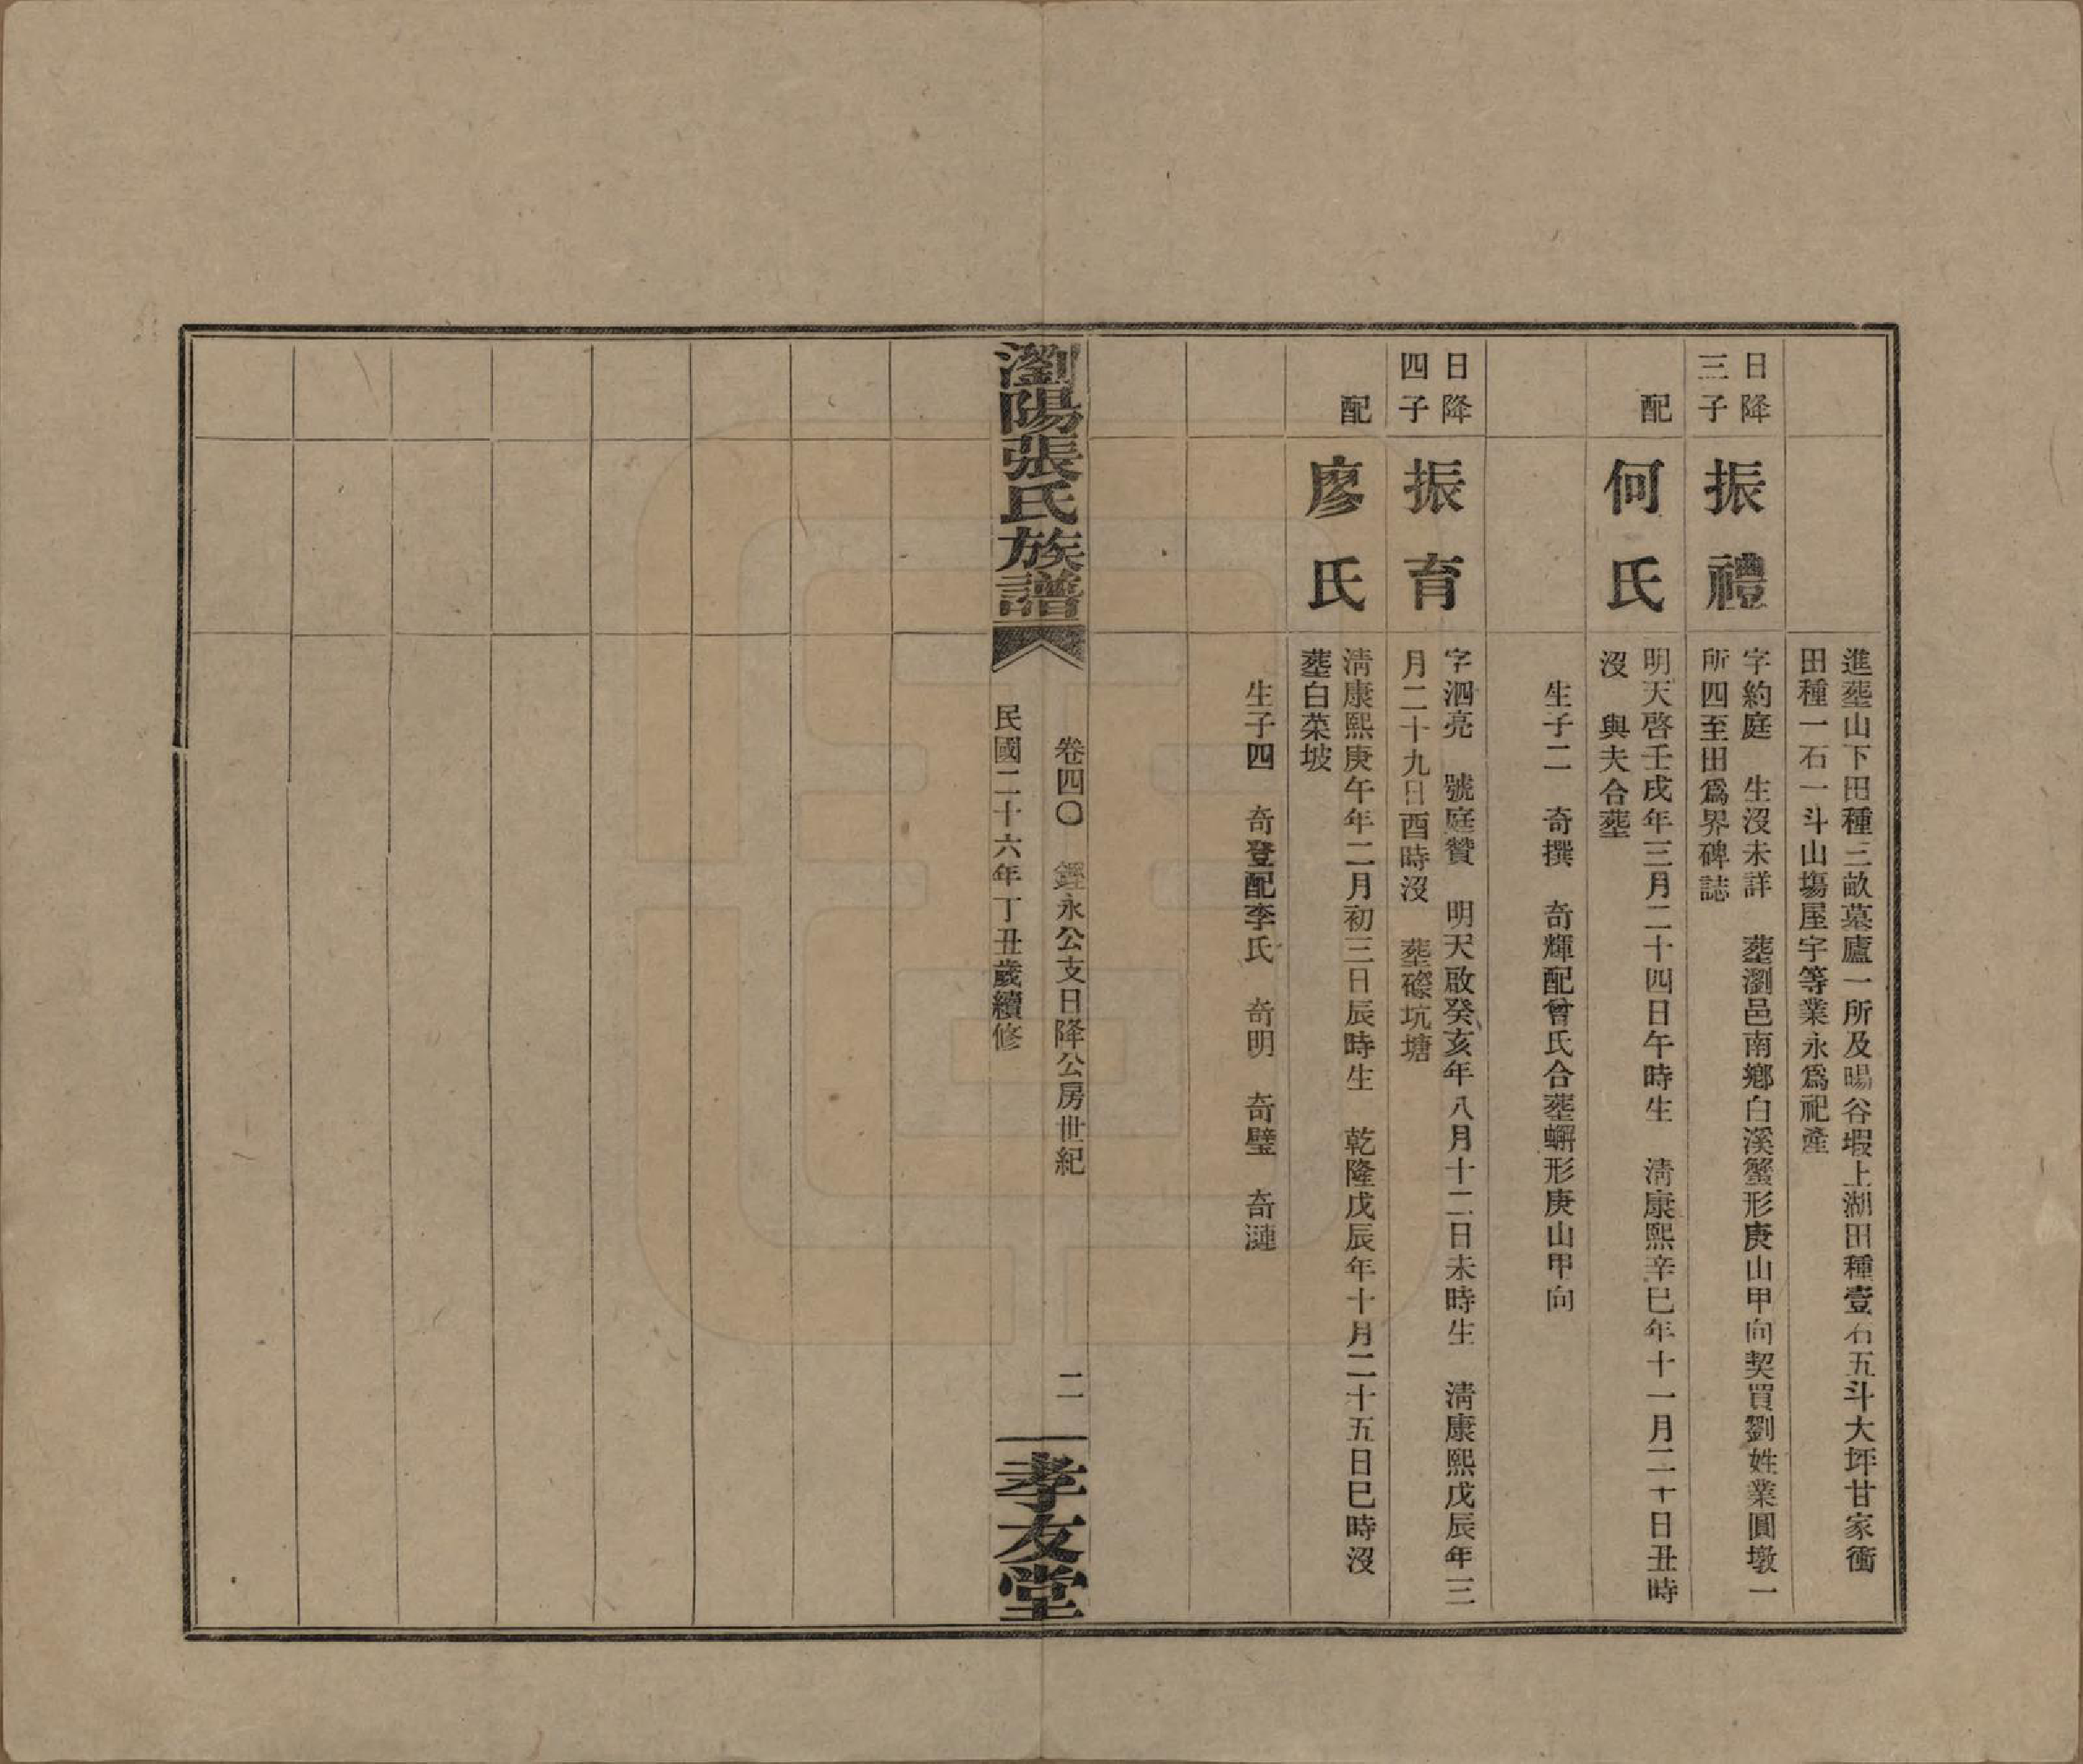 進塟山下田種三畝墓廬一所及暘谷塅上湖田種壹石五斗大坪甘家衝
田種一石一斗山塲屋宇等業永爲祀產
日降
三子
振禮
字約庭　生沒未詳　塟瀏邑南鄉白溪蟹形庚山甲向契買劉姓業圓墩一
所四至田爲界碑誌
配
何氏
明天啓壬戌年三月二十四日午時生　淸康熙辛巳年十一月二十日丑時
沒　與夫合塟
生子二　奇撰　奇輝配曾氏合塟蠏形庚山甲向
日降
四子
振育
字泗亮　號庭贊　明天啟癸亥年八月十二日未時生　淸康熙戊辰年三
月二十九日酉時沒　塟磜坑塘
配
廖氏
淸康熙庚午年二月初三日辰時生　乾隆戊辰年十月二十五日巳時沒
塟白菜坡
生子四　奇登配李氏　奇明　奇璧　奇漣
瀏陽張氏族譜
卷四〇　鏗永公支日降公房世紀　二
民國二十六年丁丑歲續修
孝友堂